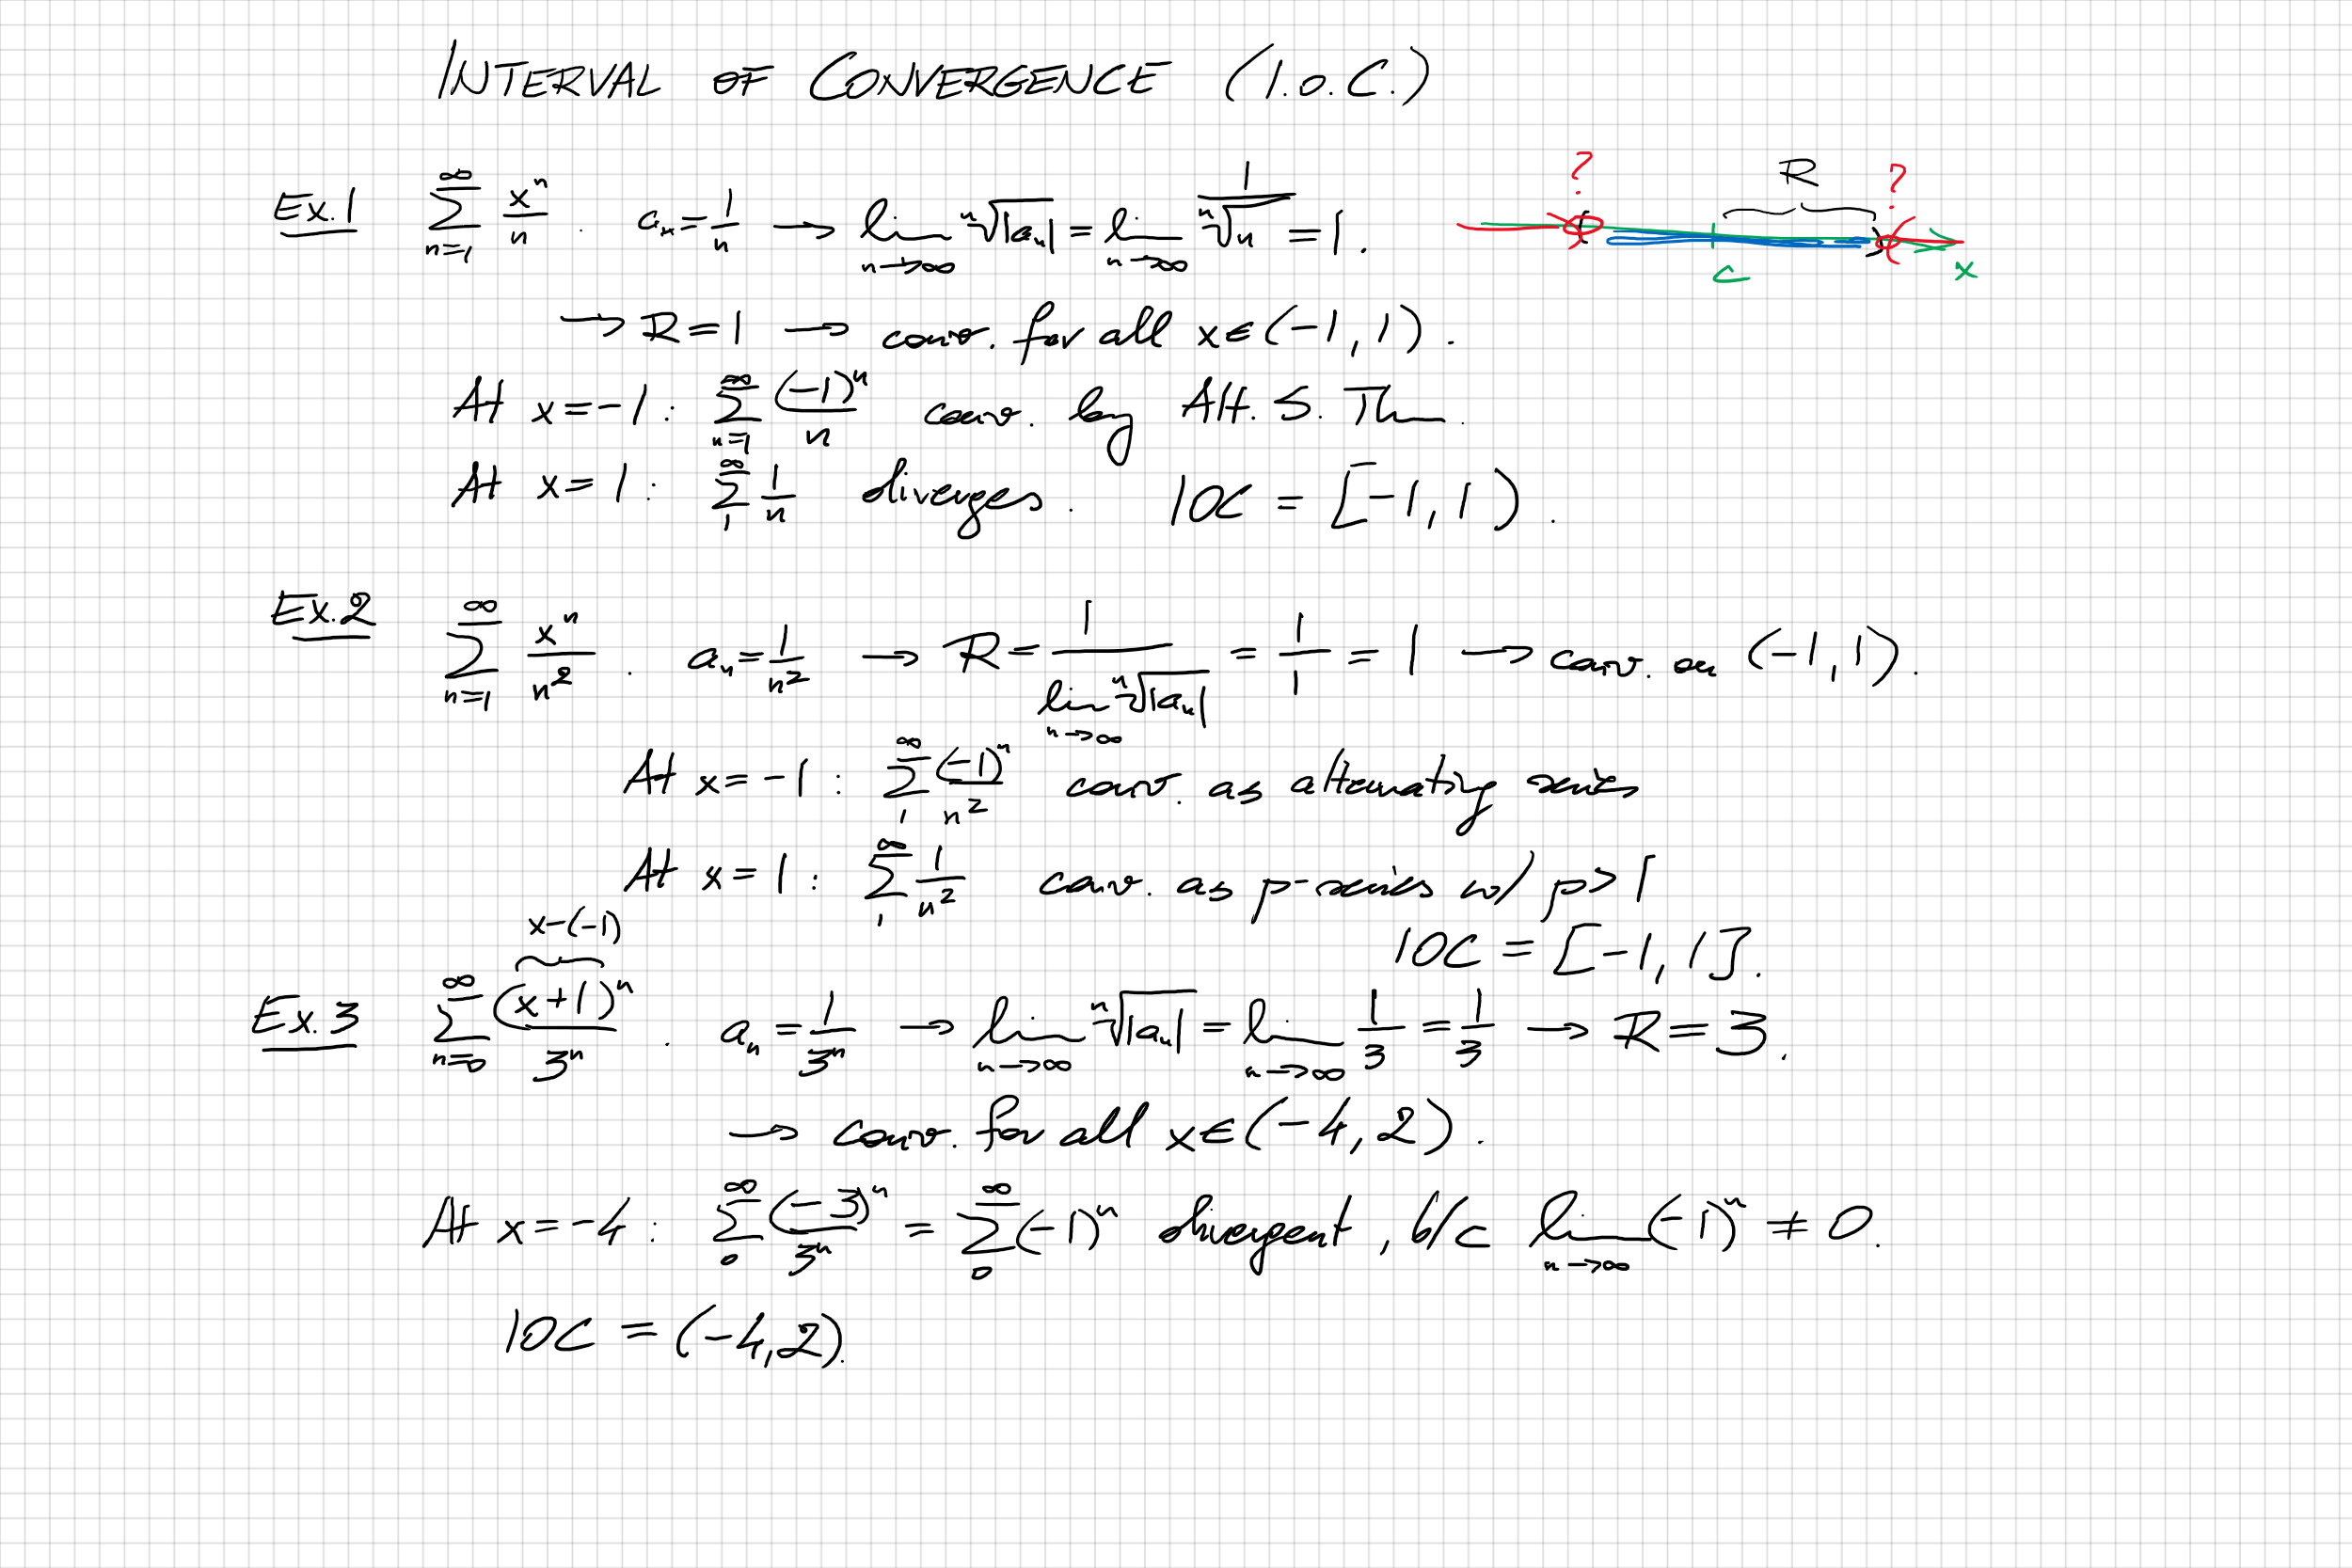 INTERVAL OF CONVERGENCE (I.O.C.)
Ex.1 ∞∑n=1 xⁿ/n . aₙ = 1/n → lim n→∞ ⁿ√|aₙ| = lim n→∞ 1/ⁿ√n = 1.
? R ?
( c ) x
→ R = 1 → conv. for all x ∈ (-1, 1).
At x = -1 : ∞∑n=1 (-1)ⁿ/n conv. by Alt. S. Thm.
At x = 1 : ∞∑1 1/n diverges. IOC = [-1, 1).
Ex.2 ∞∑n=1 xⁿ/n² . aₙ = 1/n² → R = 1/(lim n→∞ ⁿ√|aₙ|) = 1/1 = 1 → conv. on (-1, 1).
At x = -1 : ∞∑1 (-1)ⁿ/n² conv. as alternating series
At x = 1 : ∞∑1 1/n² conv. as p-series w/ p > 1
IOC = [-1, 1].
x-(-1)
Ex.3 ∞∑n=0 (x+1)ⁿ/3ⁿ . aₙ = 1/3ⁿ → lim n→∞ ⁿ√|aₙ| = lim n→∞ 1/3 = 1/3 → R = 3.
→ conv. for all x ∈ (-4, 2).
At x = -4 : ∞∑0 (-3)ⁿ/3ⁿ = ∞∑0 (-1)ⁿ divergent, b/c lim n→∞ (-1)ⁿ ≠ 0.
IOC = (-4, 2).